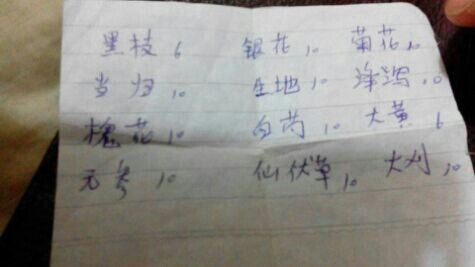 黑枝 6 银花 10 菊花 10
当归 10 生地 10 泽泻 10
槐花 10 白芍 10 大黄 6
元参 10 仙伏草 10 大刈 10